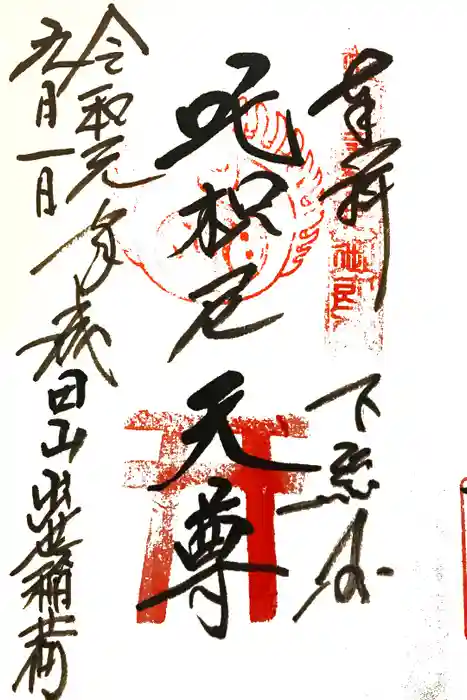 奉拝
下惣印
吒枳尼天尊
令和元年
五月一日
成田山出世稲荷